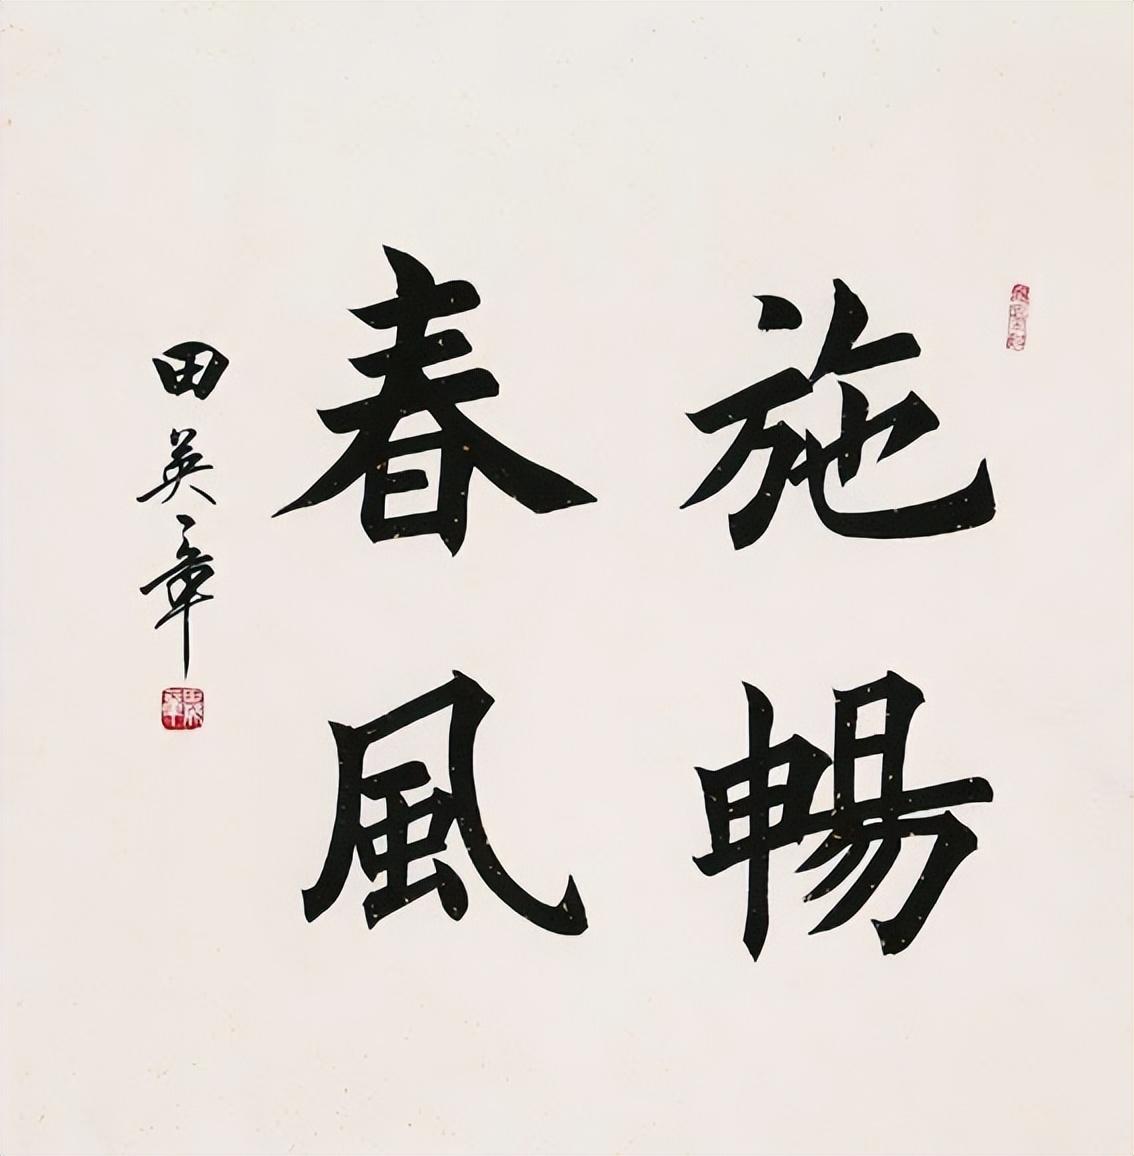 施暢
春風
田英章